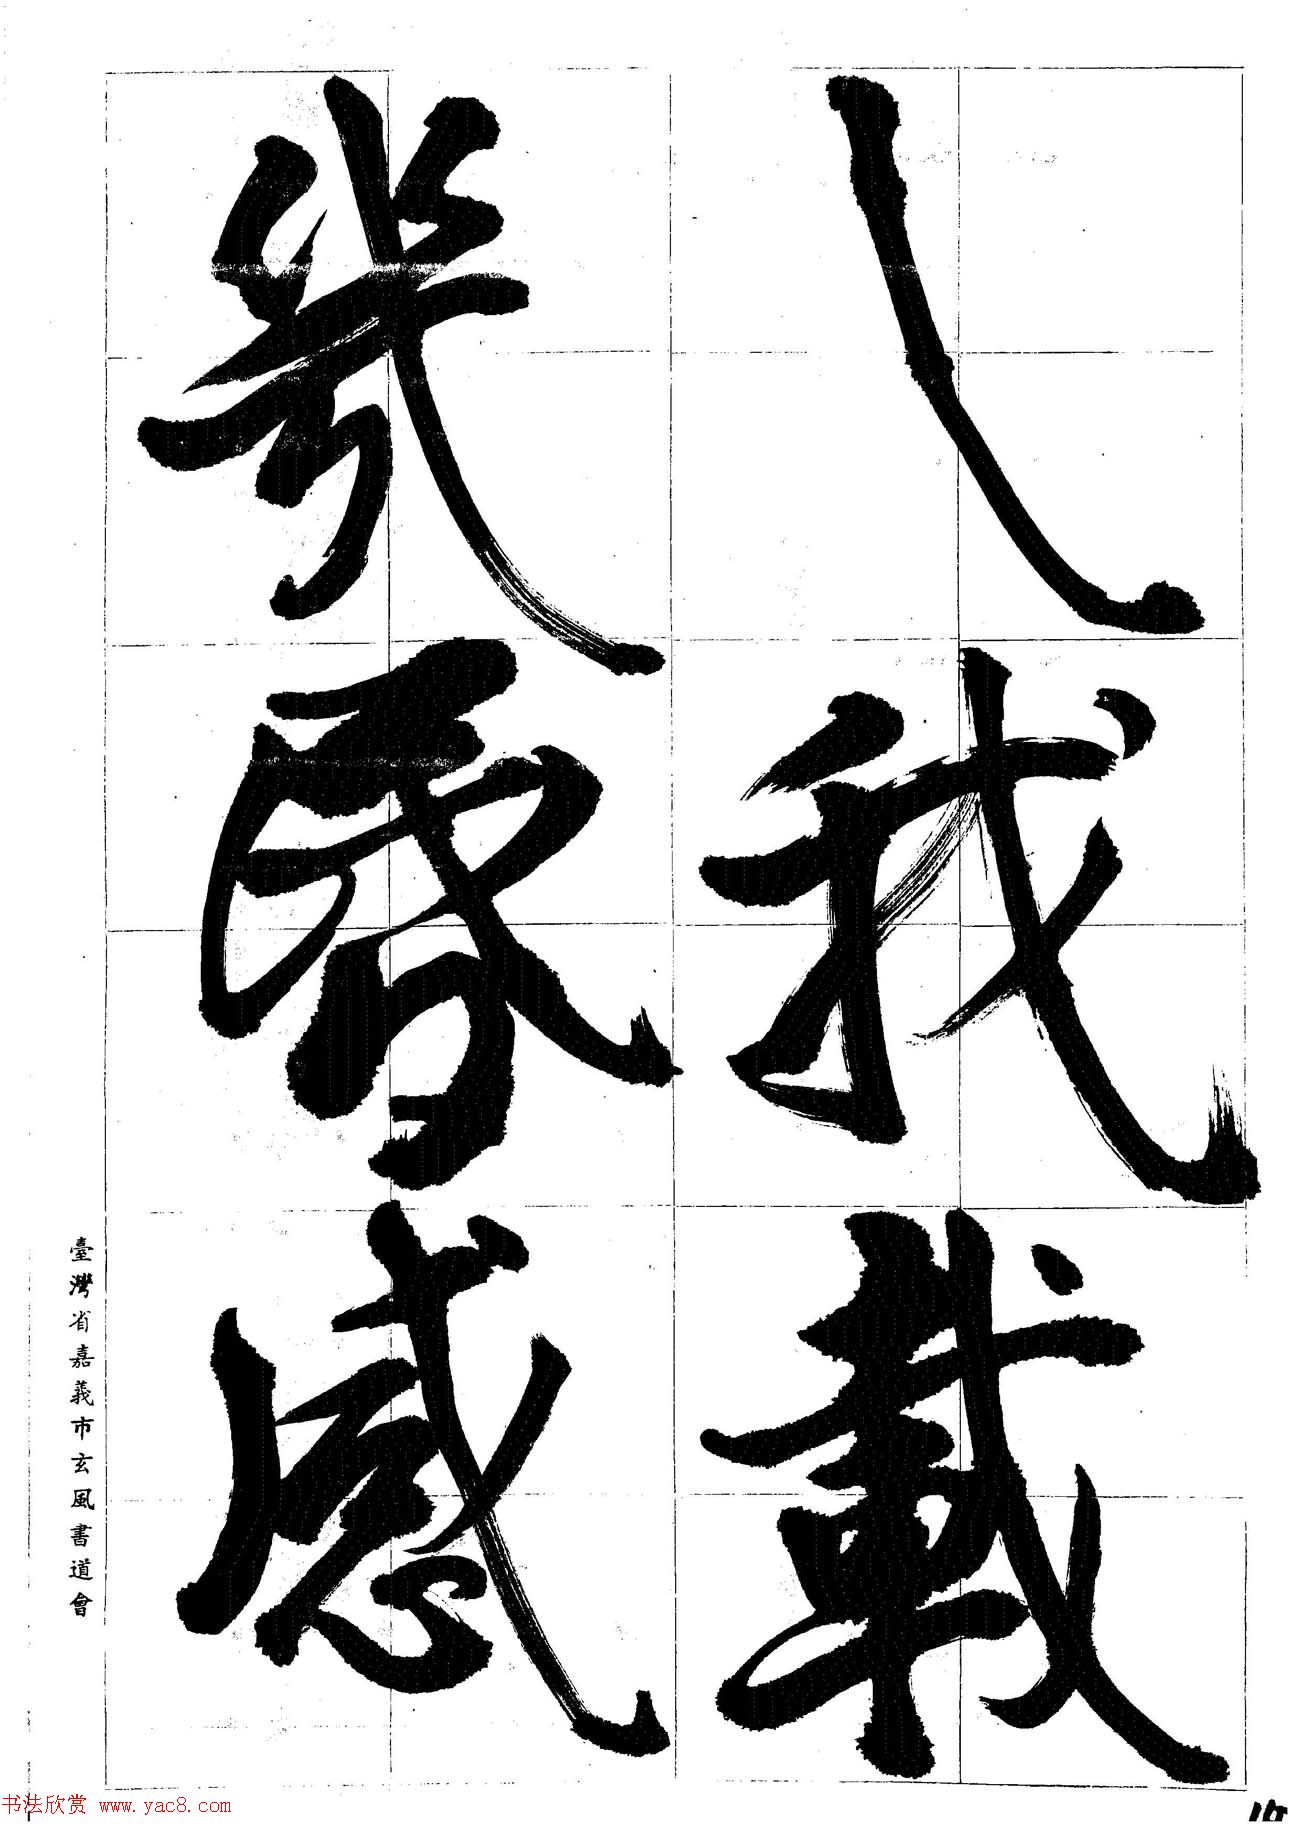 ㇂我載
幾感
臺灣省嘉義市玄風書道會
书法欣赏 www.yac8.com